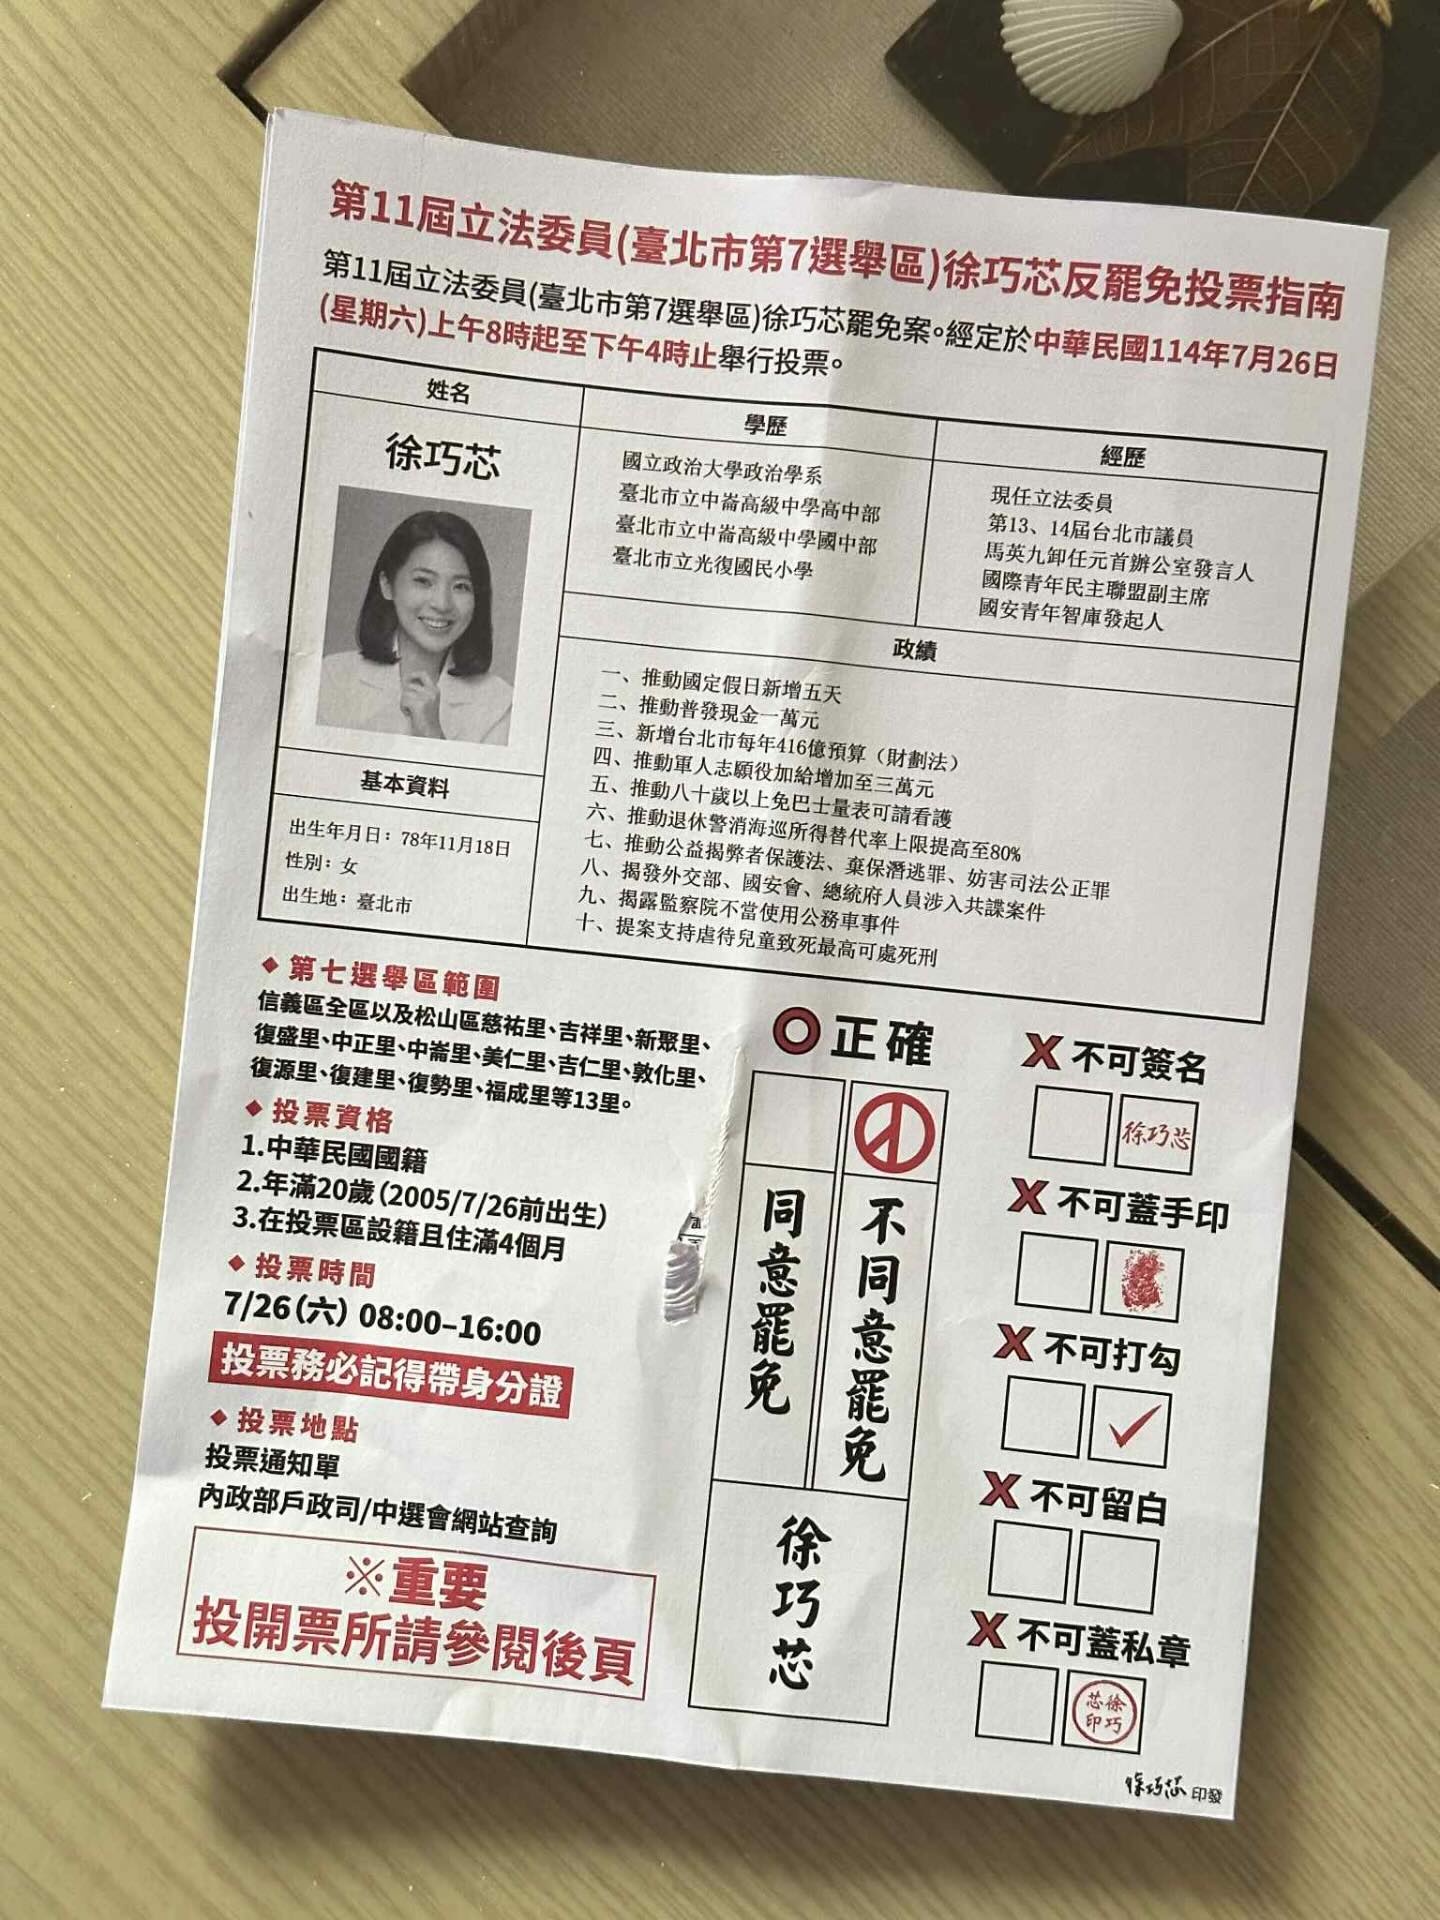 第11屆立法委員(臺北市第7選舉區)徐巧芯反罷免投票指南
第11屆立法委員(臺北市第7選舉區)徐巧芯罷免案。經定於中華民國114年7月26日
(星期六)上午8時起至下午4時止舉行投票。
姓名
徐巧芯
學歷
國立政治大學政治學系
臺北市立中崙高級中學高中部
臺北市立中崙高級中學國中部
臺北市立光復國民小學
經歷
現任立法委員
第13、14屆台北市議員
馬英九卸任元首辦公室發言人
國際青年民主聯盟副主席
國安青年智庫發起人
政績
一、推動國定假日新增五天
二、推動普發現金一萬元
三、新增台北市每年416億預算（財劃法）
四、推動軍人志願役加給增加至三萬元
五、推動八十歲以上免巴士量表可請看護
六、推動退休警消海巡所得替代率上限提高至80%
七、推動公益揭弊者保護法、棄保潛逃罪、妨害司法公正罪
八、揭發外交部、國安會、總統府人員涉入共諜案件
九、揭露監察院不當使用公務車事件
十、提案支持虐待兒童致死最高可處死刑
基本資料
出生年月日：78年11月18日
性別：女
出生地：臺北市
◆第七選舉區範圍
信義區全區以及松山區慈祐里、吉祥里、新聚里、
復盛里、中正里、中崙里、美仁里、吉仁里、敦化里、
復源里、復建里、復勢里、福成里等13里。
◆投票資格
1.中華民國國籍
2.年滿20歲（2005/7/26前出生）
3.在投票區設籍且住滿4個月
◆投票時間
7/26（六）08:00–16:00
投票務必記得帶身分證
◆投票地點
投票通知單
內政部戶政司/中選會網站查詢
※重要
投開票所請參閱後頁
正確
同意罷免
不同意罷免
徐巧芯
X 不可簽名
徐巧芯
X 不可蓋手印
X 不可打勾
X 不可留白
X 不可蓋私章
徐巧芯印
徐巧芯 印發